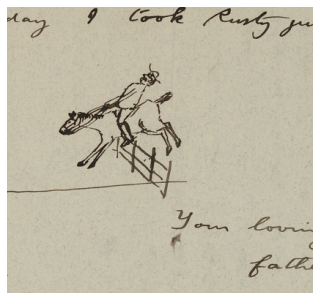 day I took Rusty
Your loving
father